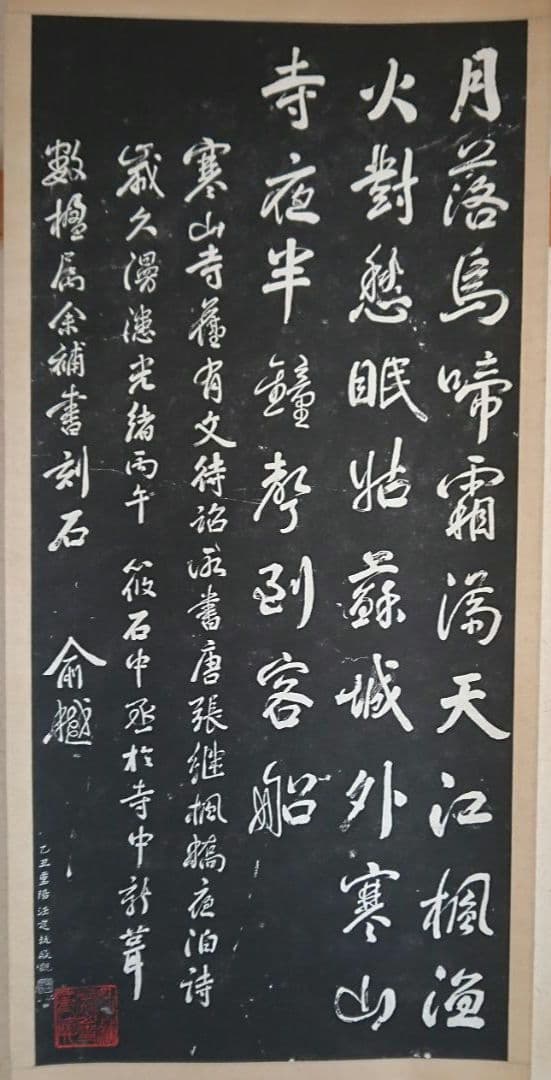 月落烏啼霜滿天江楓漁
火對愁眠姑蘇城外寒山
寺夜半鐘聲到客船
寒山寺舊有文待詔所書唐張繼楓橋夜泊詩
歲久漫漶光緒丙午 筱石中丞於寺中新葺
數楹屬余補書刻石 俞樾
乙丑重陽